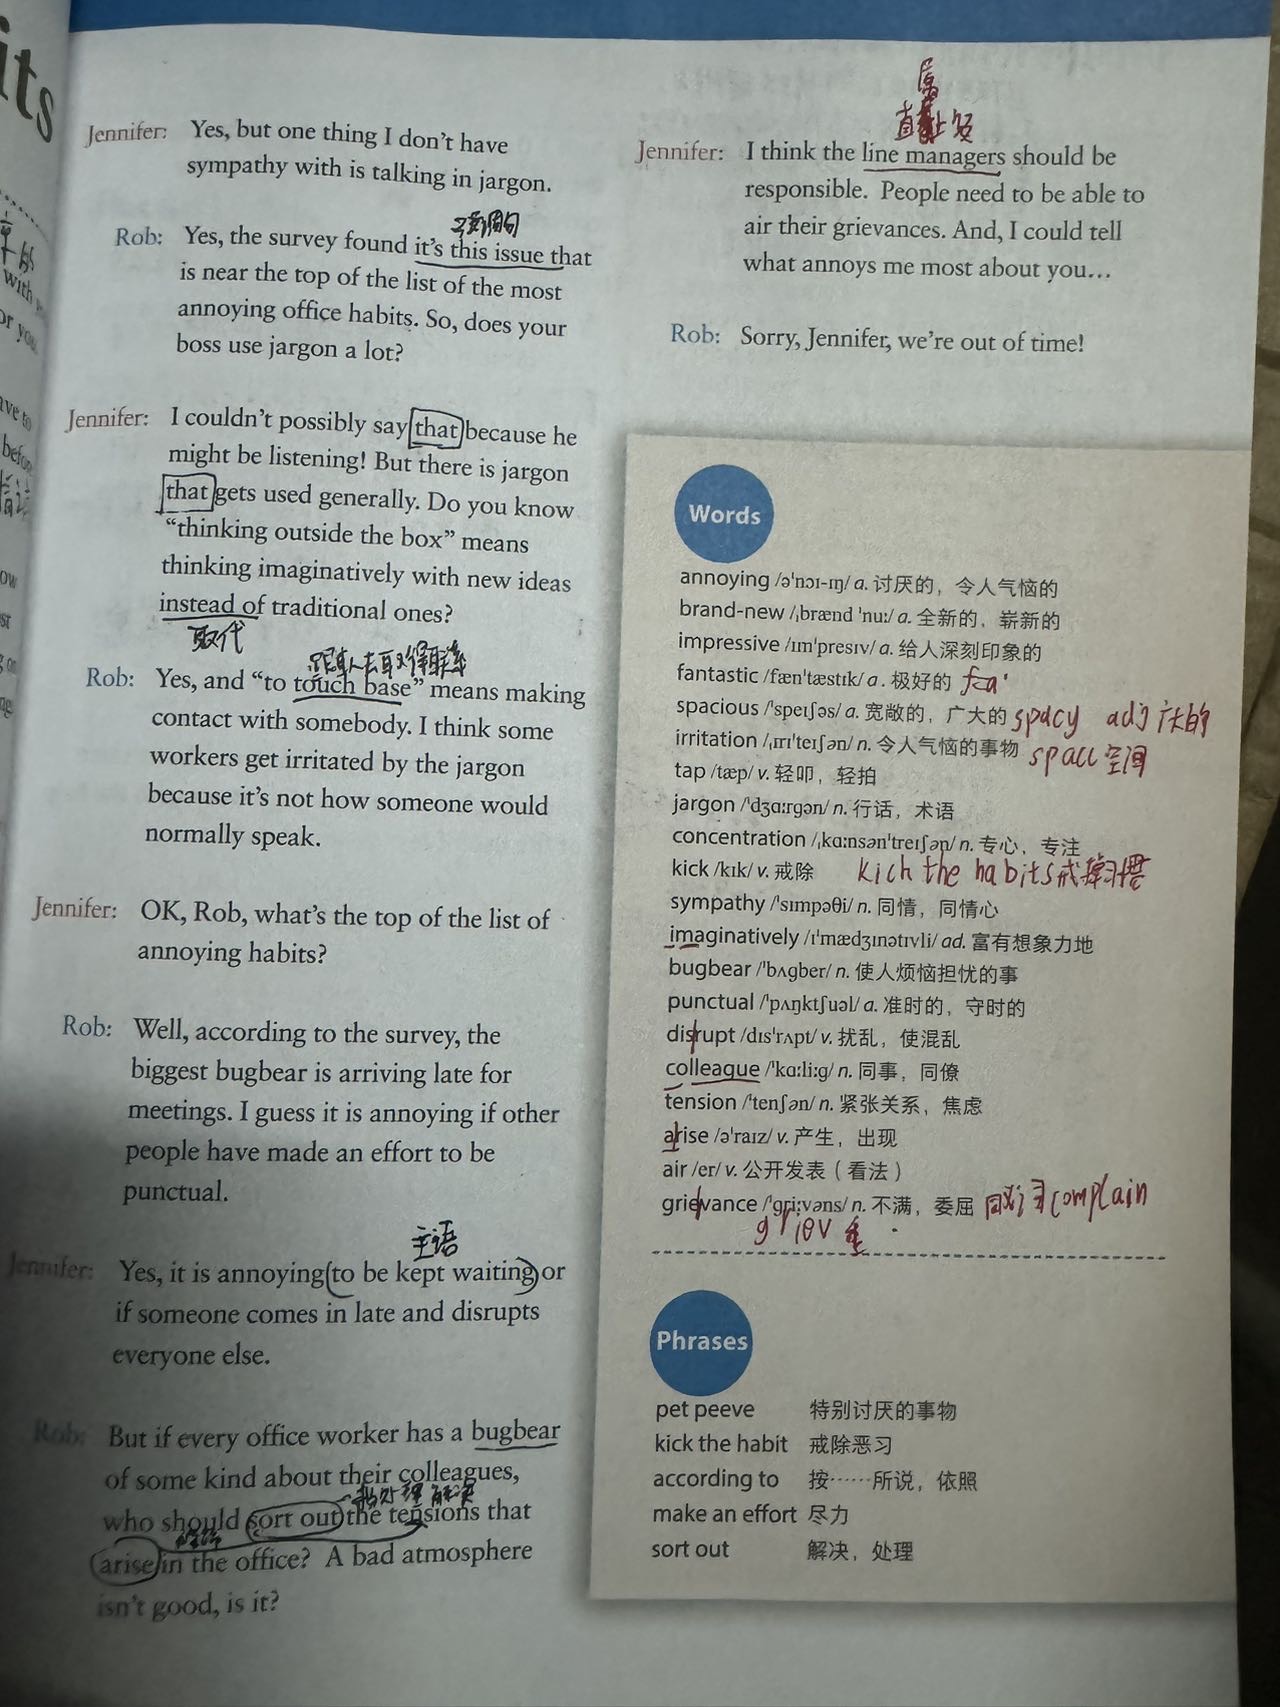 its
Jennifer: Yes, but one thing I don't have
sympathy with is talking in jargon.
强调句
Rob: Yes, the survey found it's this issue that
is near the top of the list of the most
annoying office habits. So, does your
boss use jargon a lot?
Jennifer: I couldn't possibly say that because he
might be listening! But there is jargon
that gets used generally. Do you know
“thinking outside the box” means
thinking imaginatively with new ideas
instead of traditional ones?
取代
跟某人去取得联系
Rob: Yes, and “to touch base” means making
contact with somebody. I think some
workers get irritated by the jargon
because it's not how someone would
normally speak.
Jennifer: OK, Rob, what's the top of the list of
annoying habits?
Rob: Well, according to the survey, the
biggest bugbear is arriving late for
meetings. I guess it is annoying if other
people have made an effort to be
punctual.
主语
Jennifer: Yes, it is annoying to be kept waiting or
if someone comes in late and disrupts
everyone else.
Rob: But if every office worker has a bugbear
of some kind about their colleagues,
处理 解决
who should sort out the tensions that
arise in the office? A bad atmosphere
isn't good, is it?
直 上级
Jennifer: I think the line managers should be
responsible. People need to be able to
air their grievances. And, I could tell
what annoys me most about you…
Rob: Sorry, Jennifer, we're out of time!
Words
annoying /ə'nɔɪ-ɪŋ/ a. 讨厌的，令人气恼的
brand-new /ˌbrænd 'nuː/ a. 全新的，崭新的
impressive /ɪm'presɪv/ a. 给人深刻印象的
fantastic /fæn'tæstɪk/ a. 极好的
spacious /'speɪʃəs/ a. 宽敞的，广大的 spacy adj 广大的
irritation /ˌɪrɪ'teɪʃən/ n. 令人气恼的事物 space 空间
tap /tæp/ v. 轻叩，轻拍
jargon /'dʒɑːrgən/ n. 行话，术语
concentration /ˌkɑːnsən'treɪʃən/ n. 专心，专注
kick /kɪk/ v. 戒除 kich the habits 戒掉习惯
sympathy /'sɪmpəθi/ n. 同情，同情心
imaginatively /ɪ'mædʒɪnətɪvli/ ad. 富有想象力地
bugbear /'bʌgber/ n. 使人烦恼担忧的事
punctual /'pʌŋktʃuəl/ a. 准时的，守时的
disrupt /dɪs'rʌpt/ v. 扰乱，使混乱
colleague /'kɑːliːg/ n. 同事，同僚
tension /'tenʃən/ n. 紧张关系，焦虑
arise /ə'raɪz/ v. 产生，出现
air /er/ v. 公开发表（看法）
grievance /'griːvəns/ n. 不满，委屈 同义词 complain
griev 重
Phrases
pet peeve 特别讨厌的事物
kick the habit 戒除恶习
according to 按……所说，依照
make an effort 尽力
sort out 解决，处理